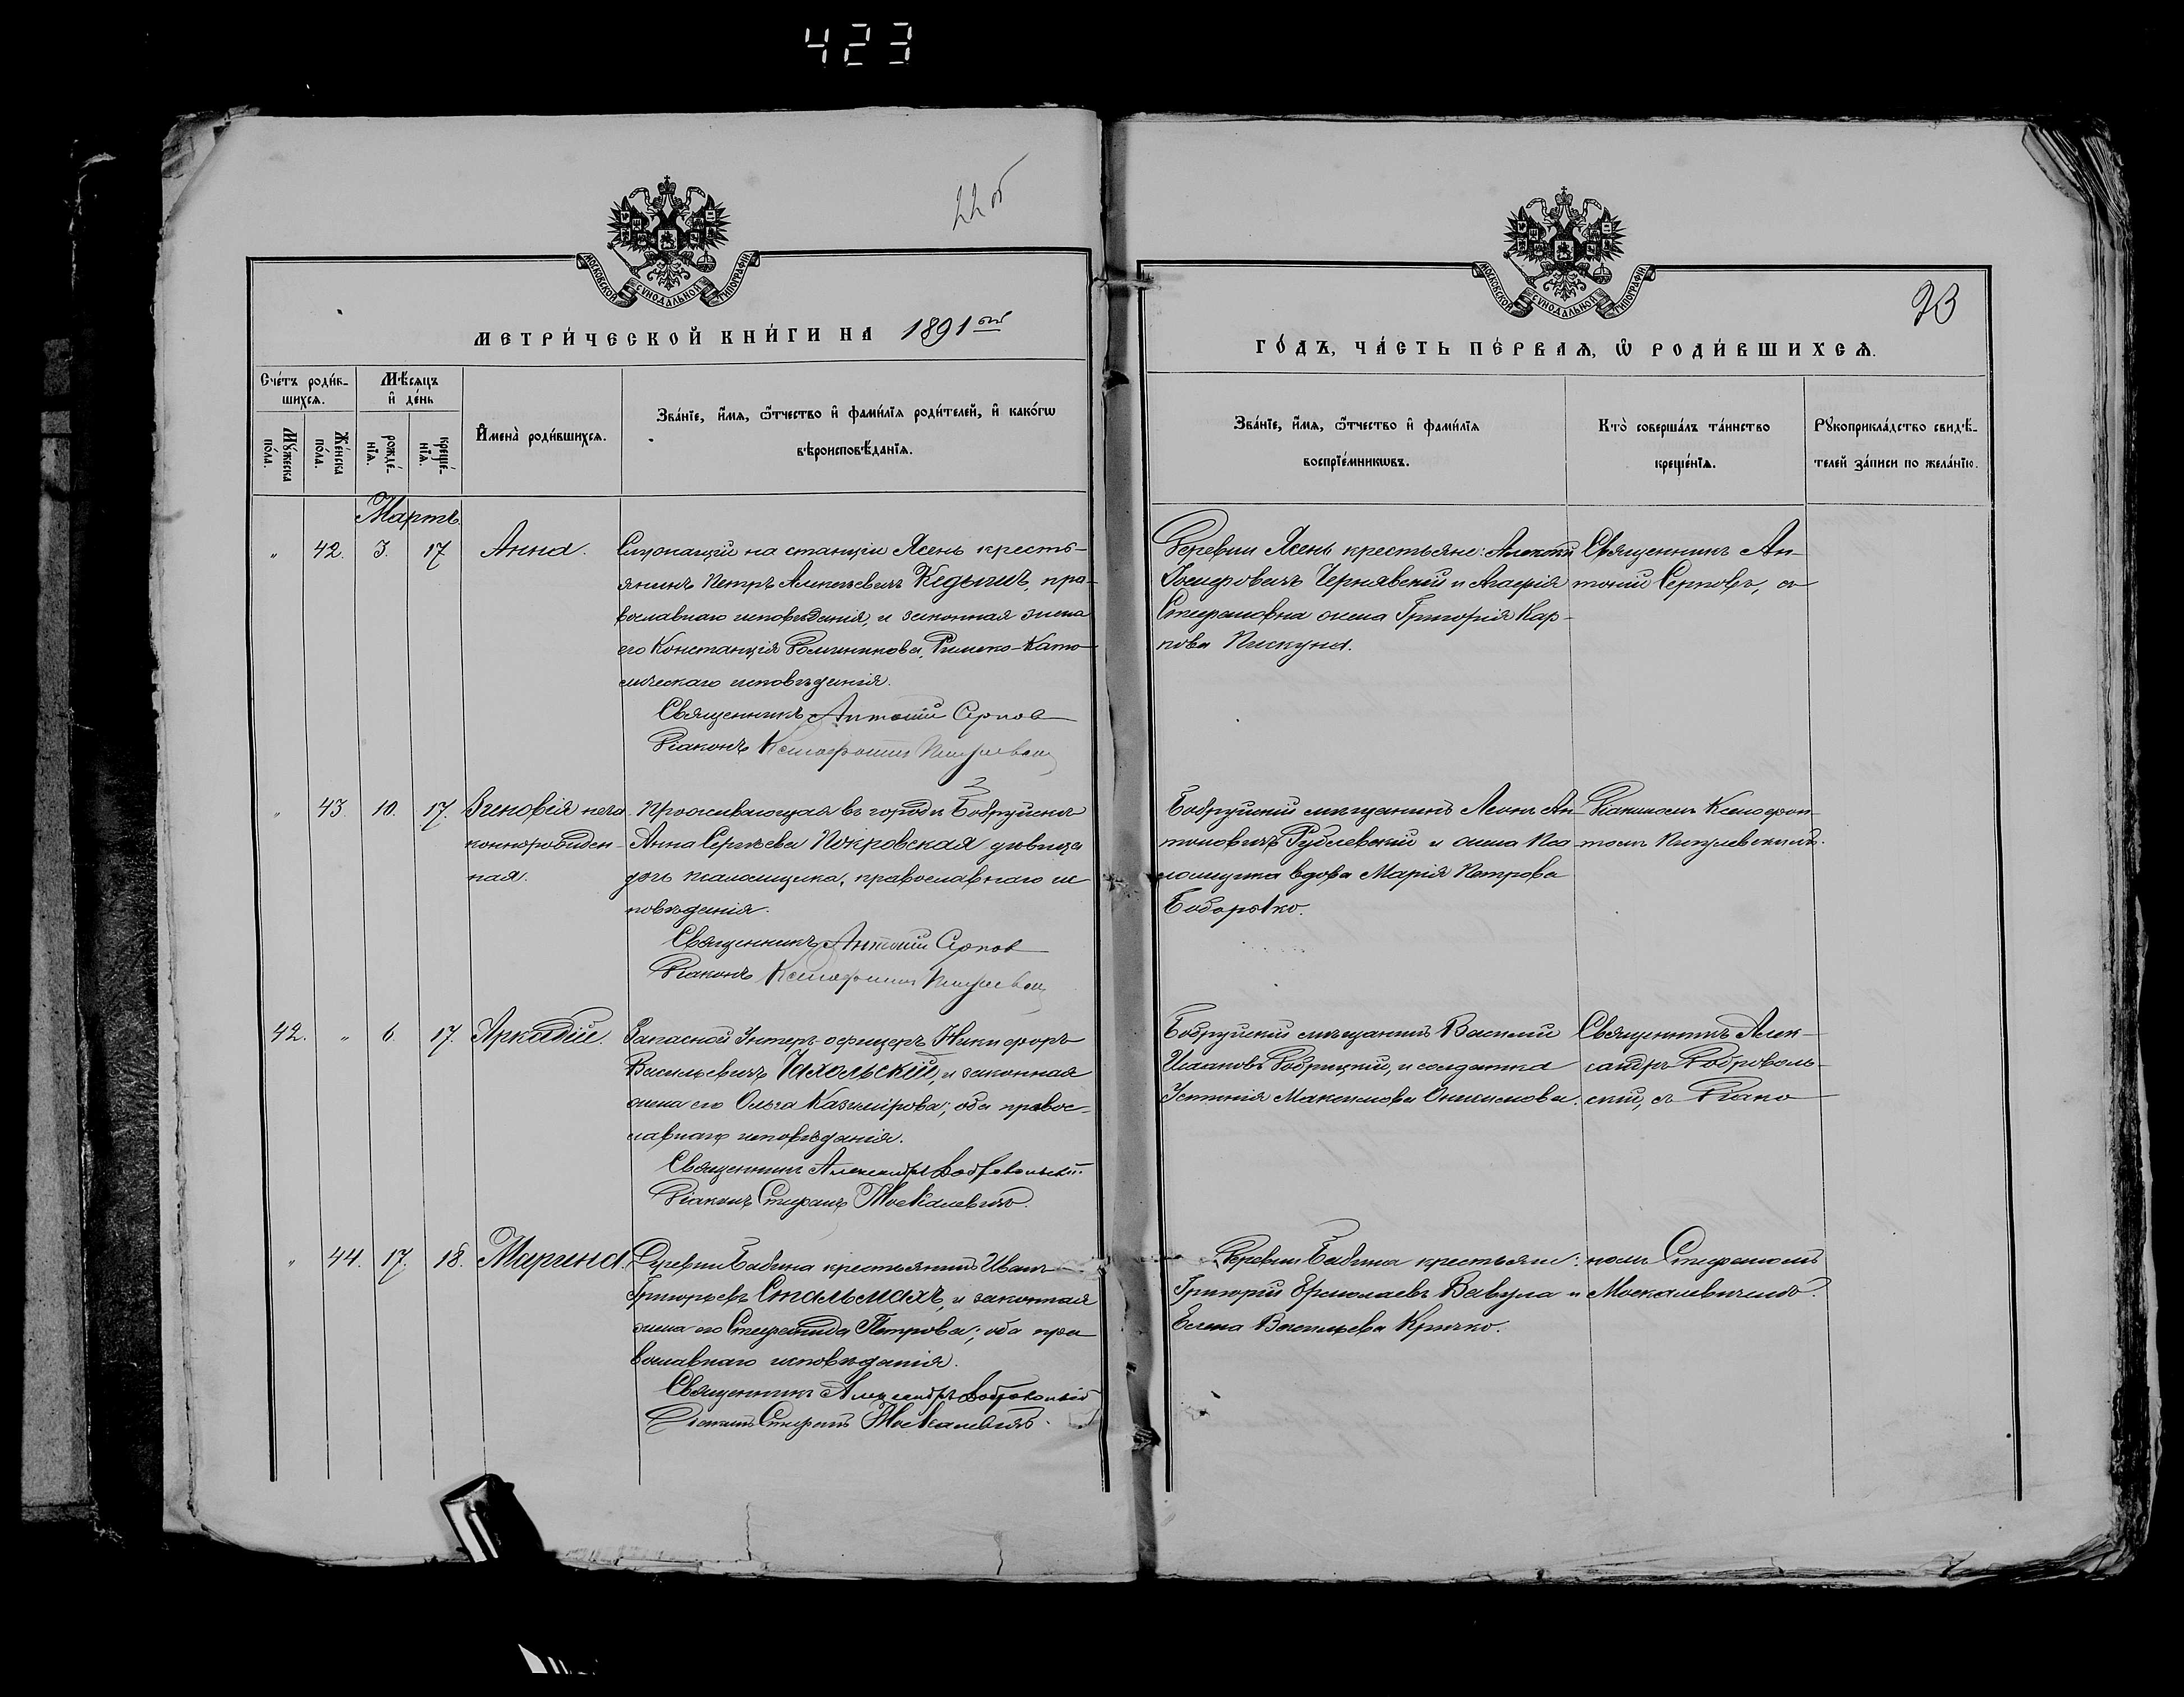 423
22 об
МОСКОВСКОЙ СѴНОДАЛЬНОЙ ТИПОГРАФІИ
МЕТРИ́ЧЕСКОЙ КНИ́ГИ НА 1891 ый
Сче́тъ роди́вшихся.
Мѣ́сяцъ и҆ де́нь
И҆мена̀ роди́вшихся.
Зва́нїе, и҆́мя, ѻ҆́тчество и҆ фами́лїя роди́телей, и҆ како́гѡ
вѣроисповѣ́данїя.
Мꙋ́жеска по́ла.
Же́нска по́ла.
рожде́нїя.
креще́нїя.
Мартъ.
„ 42. 3. 17 Анна.
Служащій на станціи Ясень кресть-
янинъ Петръ Алексѣевичъ Кедышъ, пра-
вославнаго исповѣданія, и законная жена
его Констанція Доминикова, Римско-Като-
лическаго исповѣданія.
Священникъ Антоній Серпов
Діаконъ Ксенофонтъ
„ 43. 10. 17. Зиновія неза
коннорожден-
ная.
Проживающая въ городѣ Бобруйскѣ
Анна Сергѣева Покровская дѣвица
дочь псаломщика, православнаго ис
повѣданія.
Священникъ Антоній Серпов
Діаконъ Ксенофонтъ
42. „ 6. 17. Аркадій.
Запасной Унтеръ-офицеръ Никифоръ
Васильевичъ Чахольскій, и законная
жена его Ольга Казимірова; оба правос-
лавнаго исповѣданія.
Священникъ Александръ Добровольскій.
Діаконъ Стефанъ Москалевичъ.
„ 44. 17. 18. Марина.
Деревни Бабина крестьянинъ Иванъ
Григорьевъ Стальмахъ, и законная
жена его Степанида Петрова; оба пра
вославнаго исповѣданія.
Священникъ Александръ Добровольскій
Діаконъ Стефанъ Москалевичъ.
МОСКОВСКОЙ СѴНОДАЛЬНОЙ ТИПОГРАФІИ
23
ГО́ДЪ, ЧА́СТЬ ПЕ́РВАЯ, Ѡ҆ РОДИ́ВШИХСЯ.
Зва́нїе, и҆́мя, ѻ҆́тчество и҆ фами́лїя
воспрїе́мникѡвъ.
Кто̀ соверша́лъ та́инство
креще́нїя.
Рꙋкоприкла́дство свидѣ́-
телей за́писи по жела́нїю.
Деревни Ясень крестьяне: Алексѣй
Чернявскій и Агафія
Стефановна жена Григорія Кар-
пова Пискуна.
Священникъ Ан-
тоній Серповъ, съ
Бобруйскій мѣщанинъ Леонъ Ан-
тоновичъ Рублевскій и жена Пса
ломщика вдова Марія Петрова
Діакономъ Ксенофон-
томъ
Бобруйскій мѣщанинъ Василій
Исааковъ Добрицкій, и солдатка
Устинія Максимова Онисимова.
Священникъ Алек-
сандръ Доброволь-
скій, съ Діако
Деревни Бабина крестьяне:
Григорій Ермолаевъ Вавула и
Елена Васильева Кричко.
номъ Стефаномъ
Москалевичемъ.